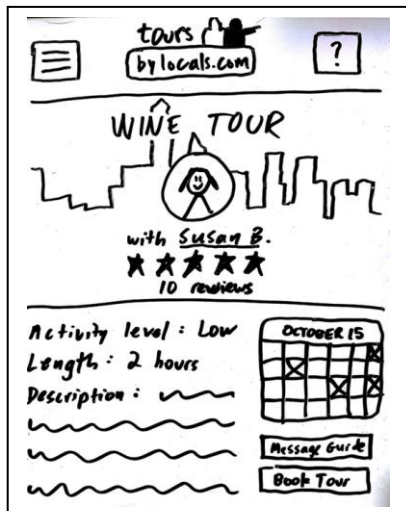 tours
bylocals.com
?
WINE TOUR
with Susan B.
10 reviews
Activity level: Low
Length: 2 hours
Description:
OCTOBER 15
Message Guide
Book Tour